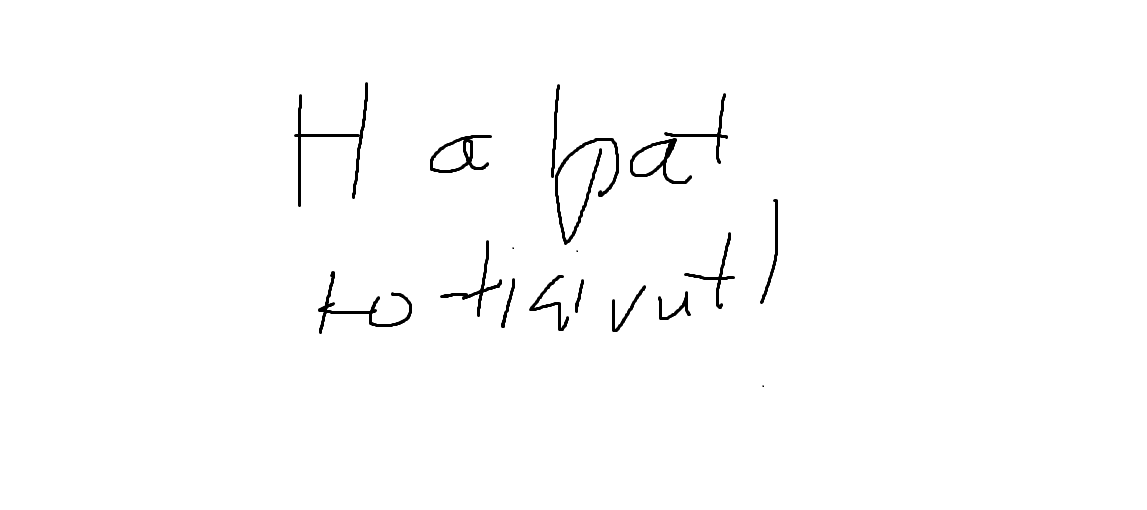 Halpat
kotisivut!